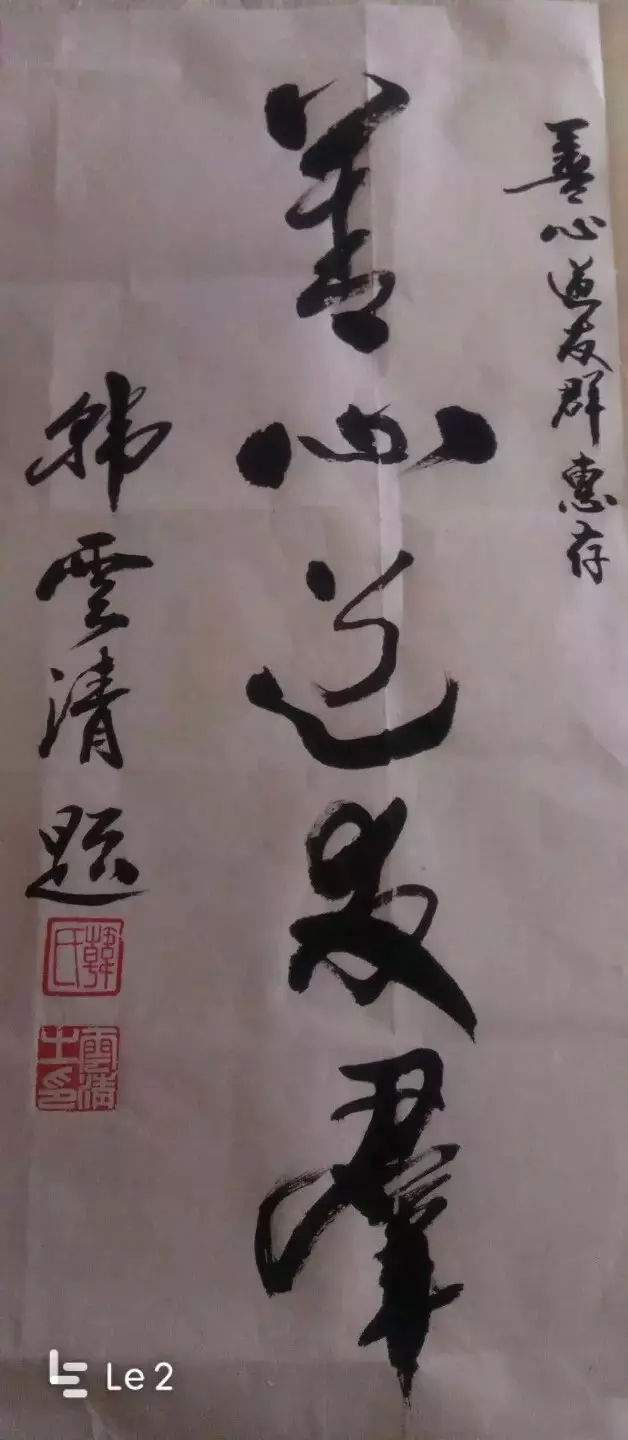 善心道友群惠存
善心道友群
韩雲清题
韓氏
雲清之印
Le 2